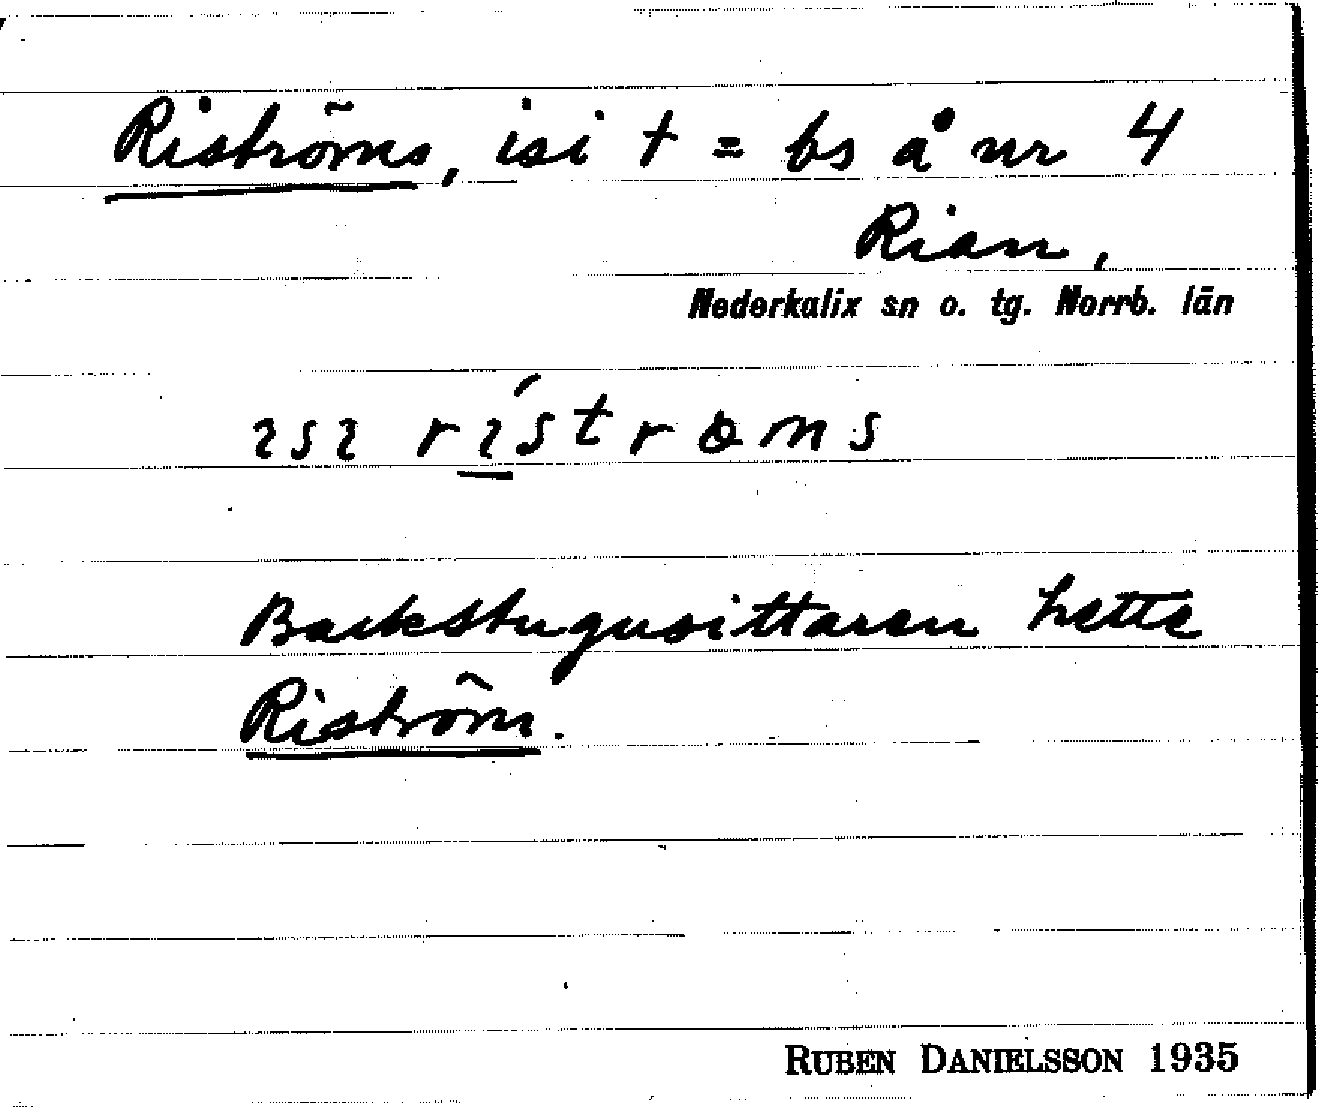 Riströms, isi † = bs å nr 4
Rian,
Nederkalix sn o. tg. Norrb. län
ısı rı́strɵms
Backstugusittaren hette
Riström.
RUBEN DANIELSSON 1935